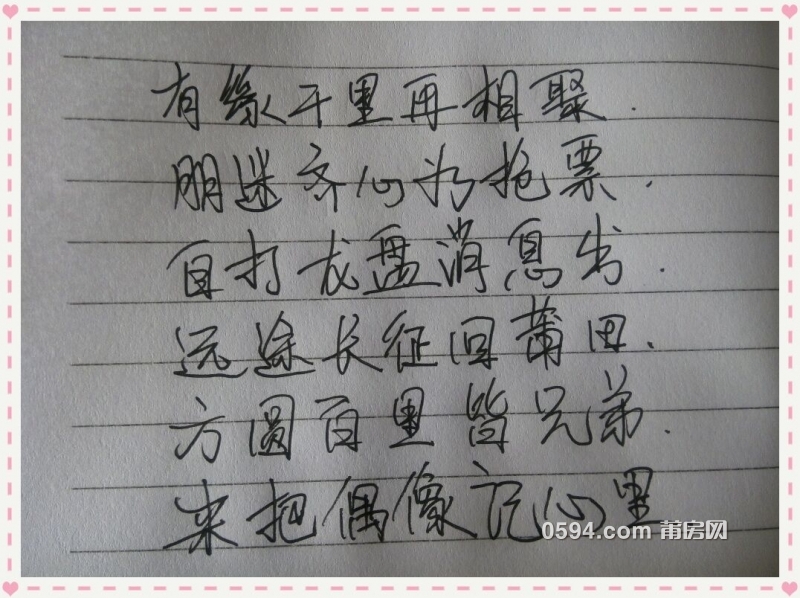 有缘千里再相聚.
朋迷齐心为抢票.
自打龙盘消息出.
远途长征回莆田.
方圆百里皆兄弟.
来把偶像记心里
0594.com 莆房网